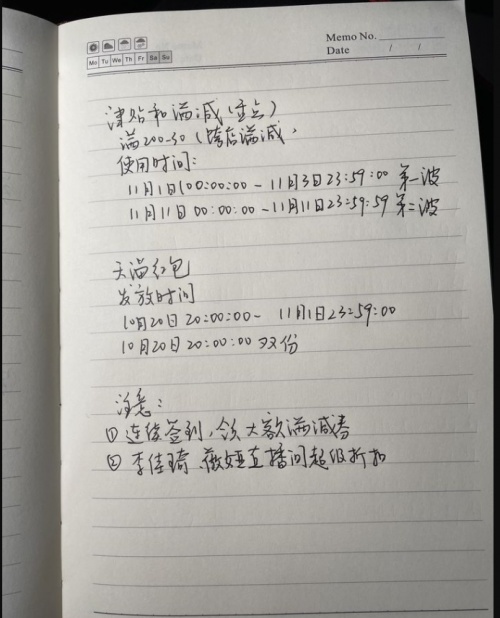 Memo No.
Mo Tu We Th Fr Sa Su
Date / /
津贴和满减(重点)
满200-30(跨店满减,
使用时间:
11月1日00:00:00-11月3日23:59:00 第一波
11月11日00:00:00-11月11日23:59:59 第二波
天猫红包
发放时间
10月20日20:00:00- 11月1日23:59:00
10月20日20:00:00双份
注意:
① 连续签到,领大额满减券
② 李佳琦、薇娅直播间超级折扣